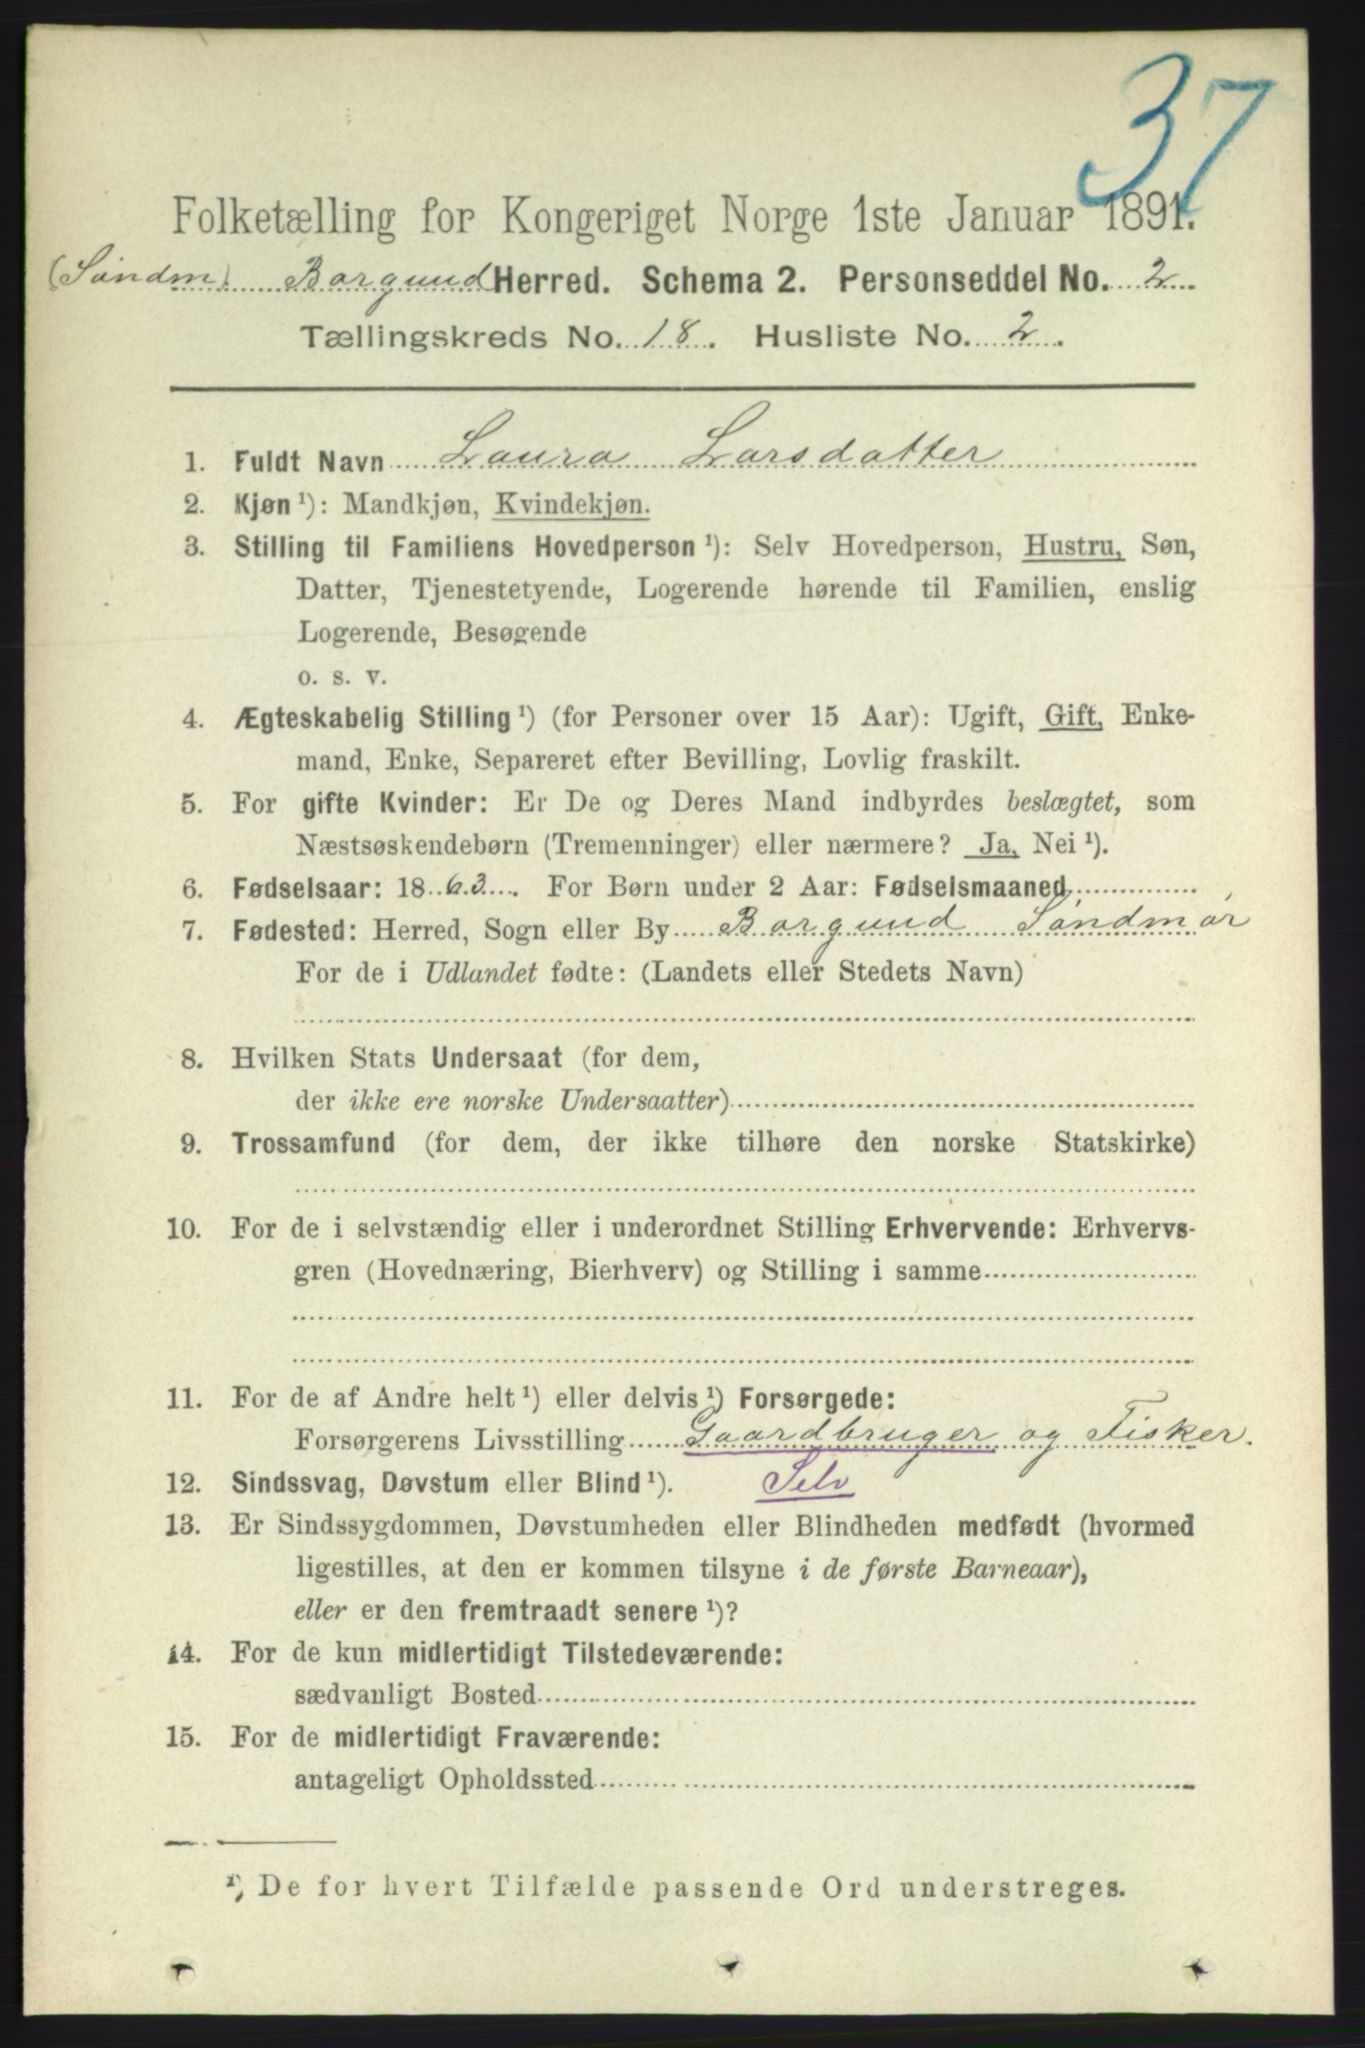 37
Folketælling for Kongeriget Norge 1ste Januar 1891.
(Søndm). Borgund Herred. Schema 2. Personseddel No. 2
Tællingskreds No. 18. Husliste No. 2.
1. Fuldt Navn Laura Larsdatter
2. Kjøn ¹): Mandkjøn, Kvindekjøn.
3. Stilling til Familiens Hovedperson ¹): Selv Hovedperson, Hustru, Søn,
Datter, Tjenestetyende, Logerende hørende til Familien, enslig
Logerende, Besøgende
o. s. v.
4. Ægteskabelig Stilling ¹) (for Personer over 15 Aar): Ugift, Gift, Enke-
mand, Enke, Separeret efter Bevilling, Lovlig fraskilt.
5. For gifte Kvinder: Er De og Deres Mand indbyrdes beslægtet, som
Næstsøskendebørn (Tremenninger) eller nærmere? Ja, Nei ¹).
6. Fødselsaar: 1863. For Børn under 2 Aar: Fødselsmaaned
7. Fødested: Herred, Sogn eller By Borgund Søndmør
For de i Udlandet fødte: (Landets eller Stedets Navn)
8. Hvilken Stats Undersaat (for dem,
der ikke ere norske Undersaatter)
9. Trossamfund (for dem, der ikke tilhøre den norske Statskirke)
10. For de i selvstændig eller i underordnet Stilling Erhvervende: Erhvervs-
gren (Hovednæring, Bierhverv) og Stilling i samme
11. For de af Andre helt ¹) eller delvis ¹) Forsørgede:
Forsørgerens Livsstilling Gaardbruger og Fisker.
12. Sindssvag, Døvstum eller Blind ¹). Selv
13. Er Sindssygdommen, Døvstumheden eller Blindheden medfødt (hvormed
ligestilles, at den er kommen tilsyne i de første Barneaar),
eller er den fremtraadt senere ¹)?
14. For de kun midlertidigt Tilstedeværende:
sædvanligt Bosted
15. For de midlertidigt Fraværende:
antageligt Opholdssted
¹) De for hvert Tilfælde passende Ord understreges.